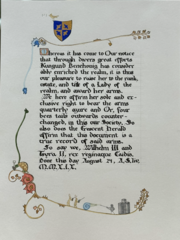 Whereas it has come to Our notice
that through divers great efforts
Benehonig has consider
ably enriched the realm, it is thus
our pleasure to raise her to the rank,
estate, and title of a Lady of the
realm, and award her arms.
We here affirm her sole and ex-
clusive right to bear the arms
quarterly azure and Or, four
bees tails outwards counter-
changed, in this our Society. So
also does the Crescent Herald
affirm that this document is a
true record of said arms.
So say we, Wilhelm III and
II, rex reginaque
Done this day August 24, A.S. liv,